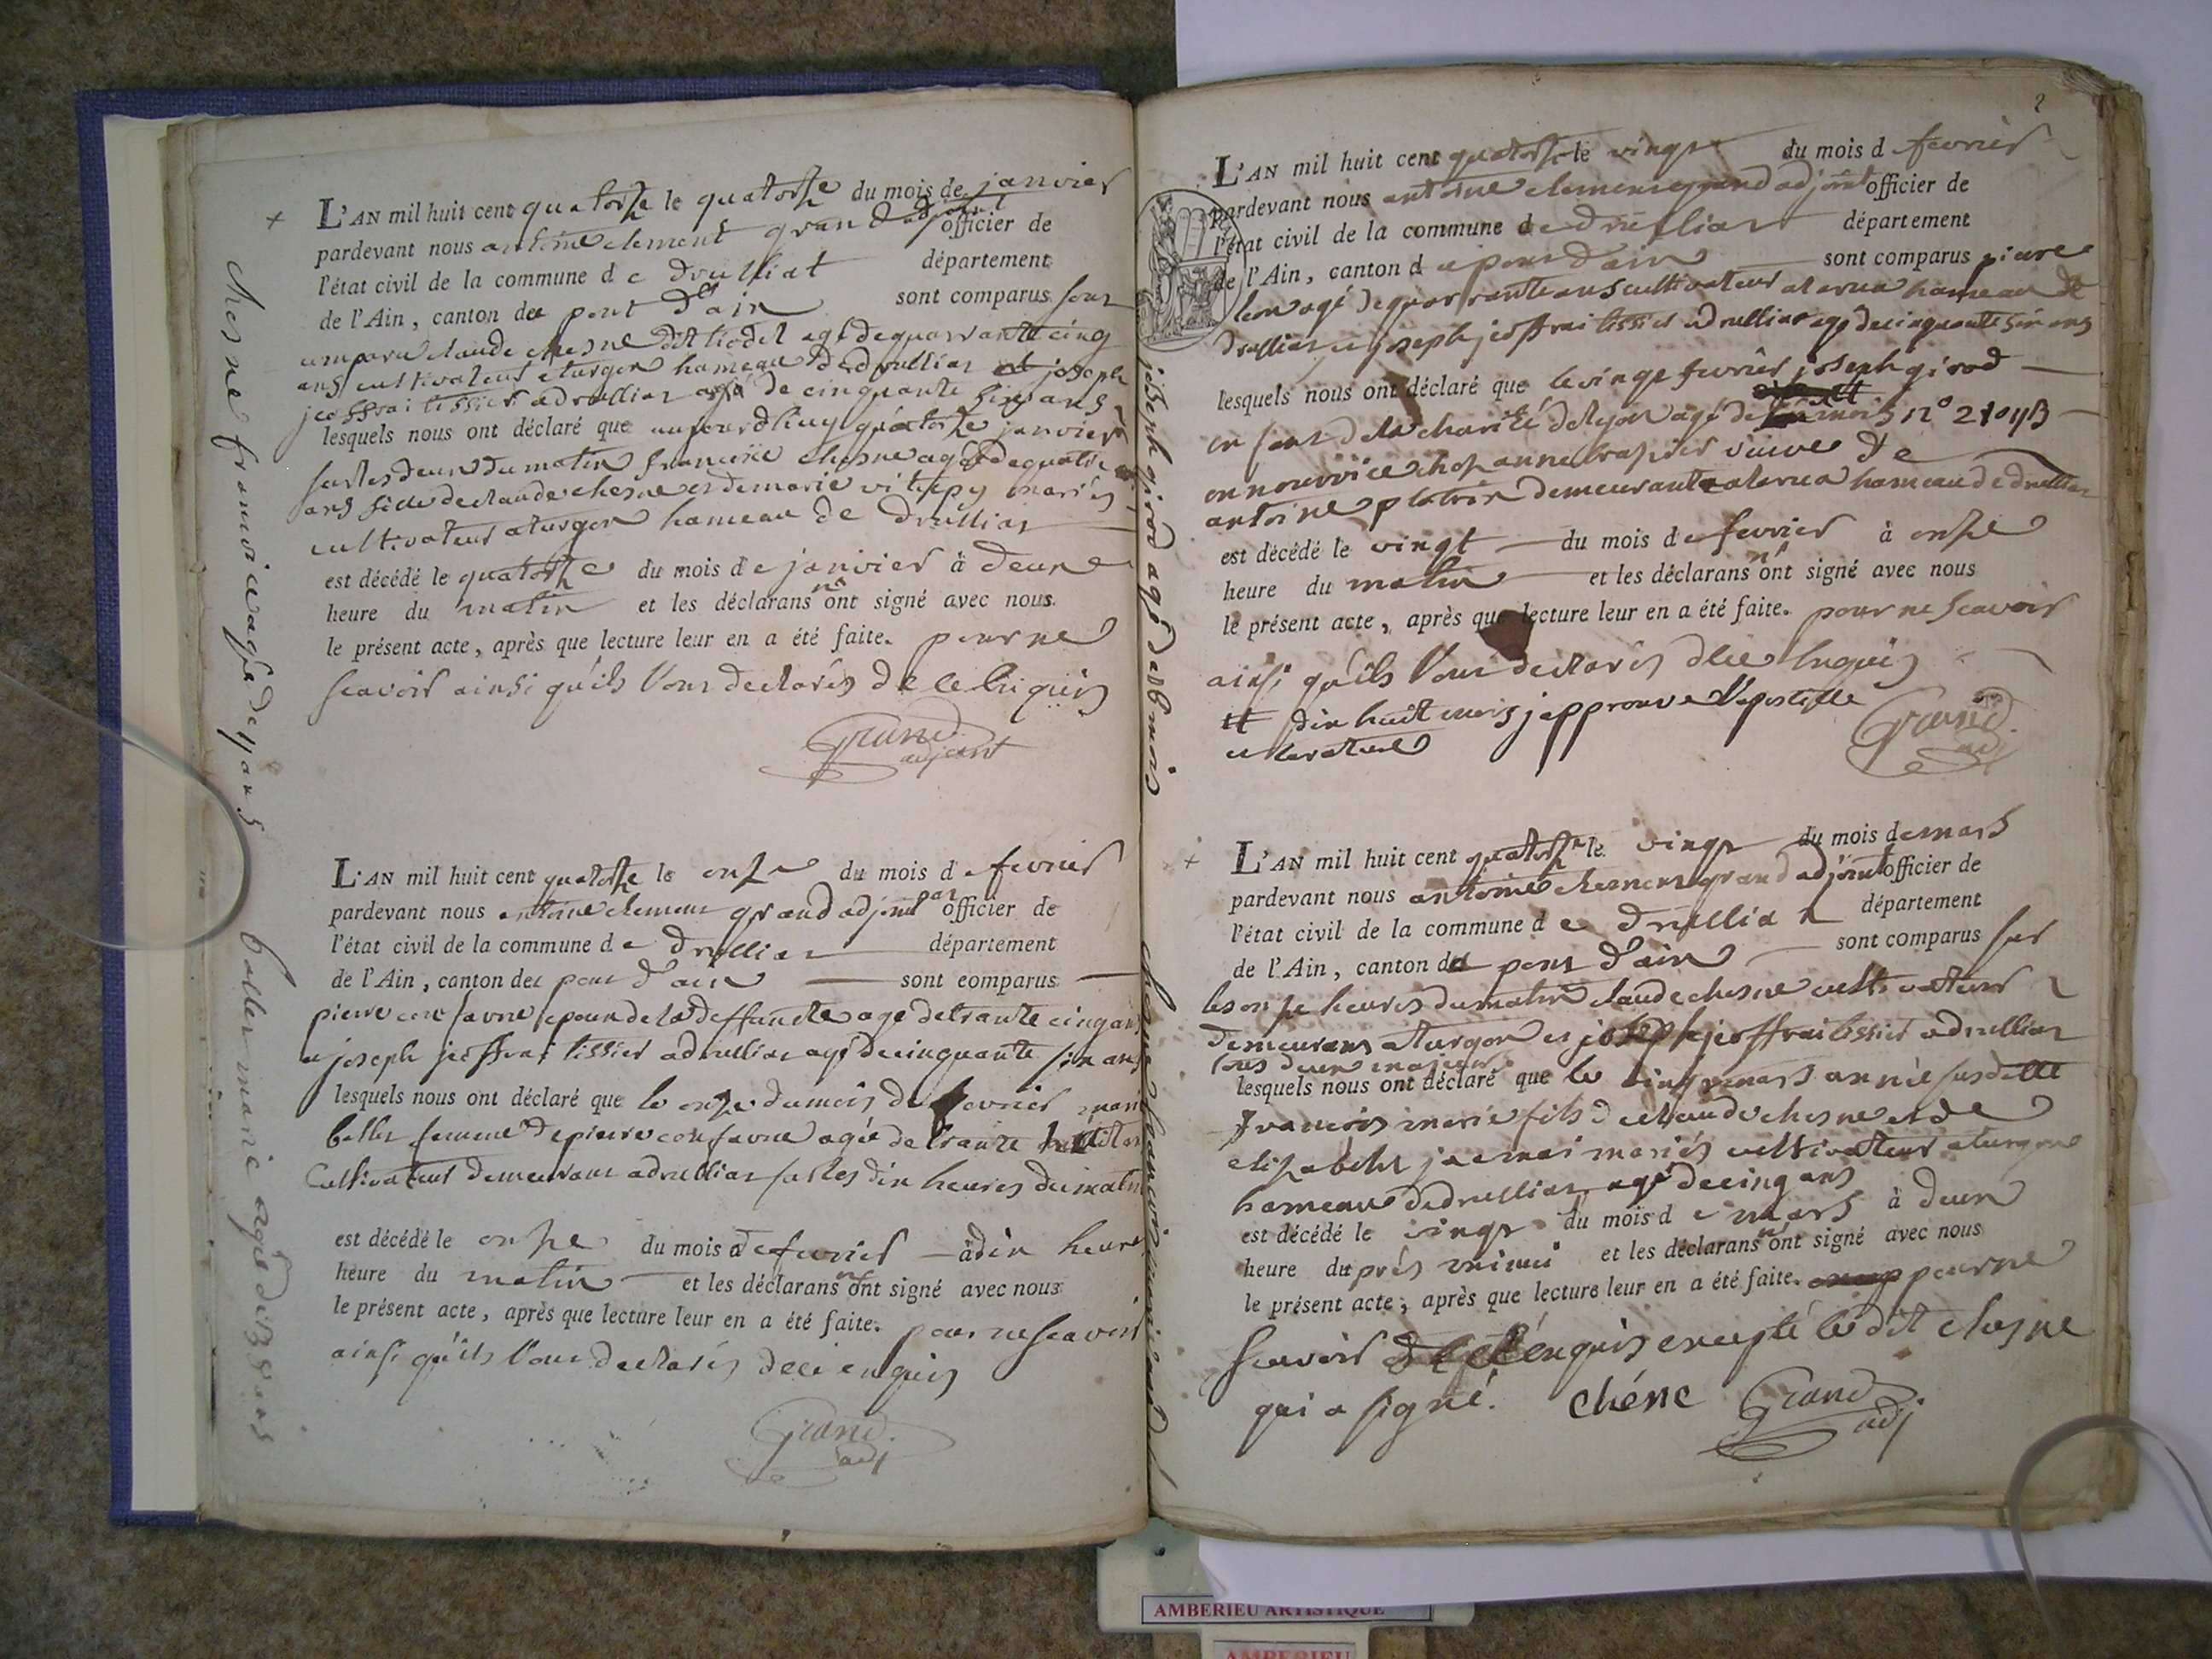 L'AN mil huit cent quatorze le quatorze du mois de janvier
pardevant nous antoine clement grand adjoint officier de
l'état civil de la commune de drulliat département
de l'Ain, canton de pont d'ain sont comparus
claude chesne agé de quarrante cinq
ans cultivateur a turgon hameau de drulliat et joseph
jeoffrai tissier a drulliat agé de cinquante six ans
lesquels nous ont déclaré que aujourdhuy quatorze janvier
sur les deux du matin francoise chesne agée de quatre
ans fille de claude chesne et de marie mariés
cultivateur a turgon hameau de drulliat
est décédé le quatorze du mois de janvier à deux
heure du matin et les déclarans n'ont signé avec nous
le présent acte, après que lecture leur en a été faite. pour ne
scavoir ainsi quils l'ont declarés de ce enquis
Grand
adjoint
chesne francoise agée de 4 ans
L'AN mil huit cent quatorze le onze du mois de fevrier
pardevant nous antoine clement grand adjoint par officier de
l'état civil de la commune de drulliat département
de l'Ain, canton de pont d'ain sont comparus
pierre confavre epoux de la deffuncte agé de trante cinq ans
et joseph jeoffrai tissier a drulliat agé de cinquante six ans
lesquels nous ont déclaré que le onze du mois de fevrier marie
ballet femme de pierre confavre agée de trante
cultivateur demeurant a drulliat sur les dix heures du matin
est décédé le onze du mois de fevrier à dix heure
heure du matin et les déclarans n'ont signé avec nous
le présent acte, après que lecture leur en a été faite. pour ne scavoir
ainsi qu'ils l'ont declarés de ce enquis
Grand
adj
ballet marie agée de ans
2
L'AN mil huit cent quatorze le vingt du mois d fevrier
pardevant nous antoine clement grand adjoint officier de
l'état civil de la commune de drulliat département
de l'Ain, canton de pont d'ain sont comparus pierre
leon agé de quarrante ans cultivateur a hameau de
drulliat et joseph jeoffrai tissier a drulliat agé de cinquante six ans
lesquels nous ont déclaré que le vingt fevrier joseph girod
enfant de la charité de lyon agé de mois n°
en nourrice chez anne veuve de
antoine platrier demeurante a hameau de drulliat
est décédé le vingt du mois de fevrier à onze
heure du matin et les déclarans n'ont signé avec nous
le présent acte, après que lecture leur en a été faite. pour ne scavoir
ainsi qu'ils l'ont declarés de ce enquis
dix huit mois j'approuve l'apostille
et la rature
Grand
adj
joseph girod agé de 18 mois
L'AN mil huit cent quatorze le vingt du mois de mars
pardevant nous antoine clement grand adjoint officier de
l'état civil de la commune de drulliat département
de l'Ain, canton de pont d'ain sont comparus sur
les onze heures du matin claude chesne cultivateur
demeurant a turgon et joseph jeoffrai tissier a drulliat
tous deux majeurs
lesquels nous ont déclaré que le vingt mars année susditte
francois marie fils de claude chesne et de
elizabeth mariés cultivateur a turgon
hameau de drulliat agé de cinq ans
est décédé le vingt du mois de mars à deux
heure du près minui et les déclarans n'ont signé avec nous
le présent acte, après que lecture leur en a été faite. pour ne
scavoir de ce enquis excepté le dit chesne
qui a signé. chéne Grand
adj
AMBERIEU ARTISTIQUE
AMBERIEU